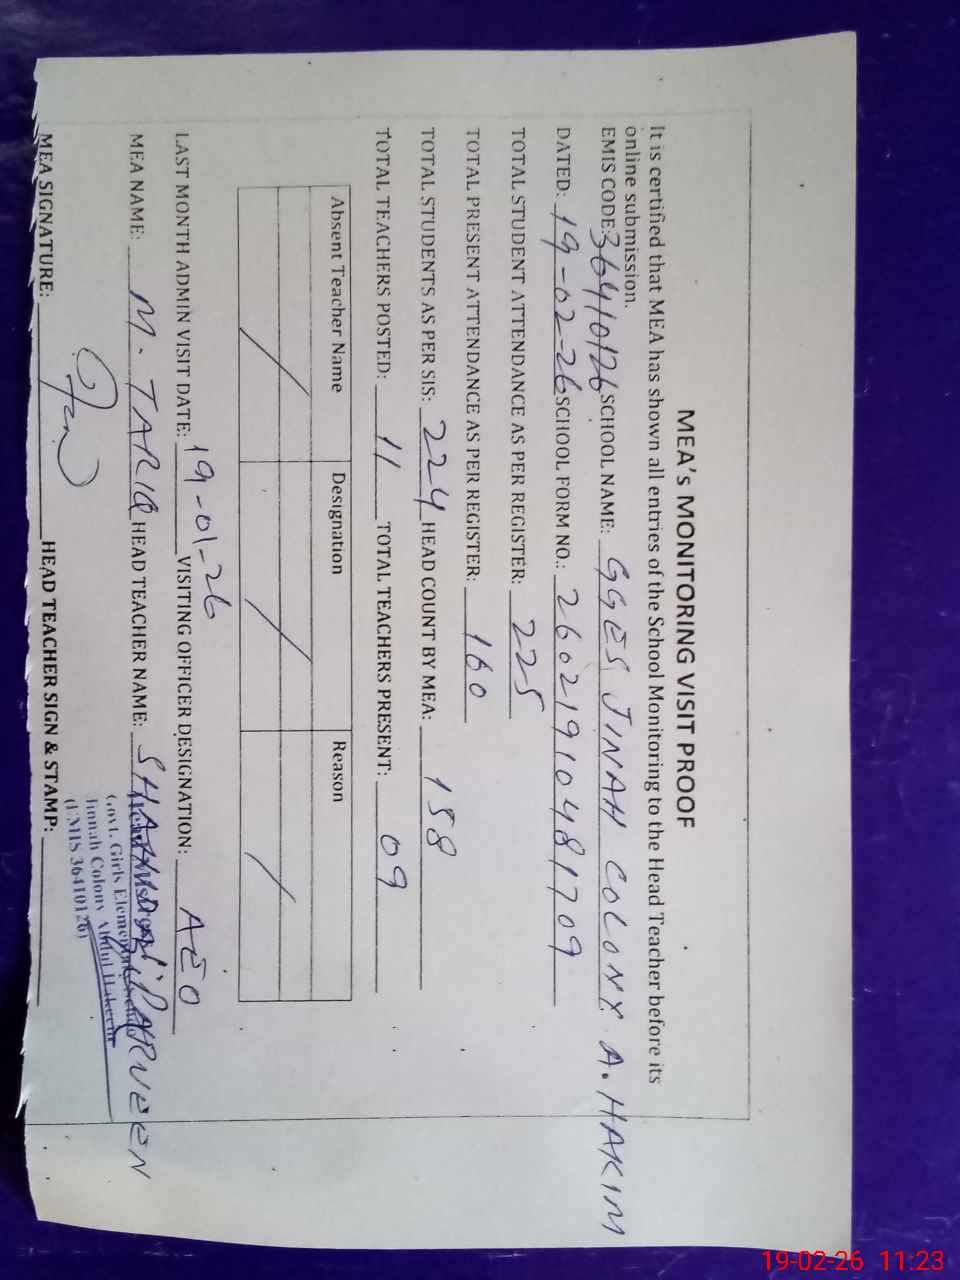 MEA's MONITORING VISIT PROOF
It is certified that MEA has shown all entries of the School Monitoring to the Head Teacher before its
online submission.
EMIS CODE: 36410126 SCHOOL NAME: GGES JINAH COLONY A. HAKIM
DATED: 19-02-26 SCHOOL FORM NO.: 26021910481709
TOTAL STUDENT ATTENDANCE AS PER REGISTER: 225
TOTAL PRESENT ATTENDANCE AS PER REGISTER: 160
TOTAL STUDENTS AS PER SIS: 224 HEAD COUNT BY MEA: 158
TOTAL TEACHERS POSTED: 11 TOTAL TEACHERS PRESENT: 09
Absent Teacher Name Designation Reason
LAST MONTH ADMIN VISIT DATE: 19-01-26 VISITING OFFICER DESIGNATION: AEO
MEA NAME: M. TARIQ HEAD TEACHER NAME: PARVEEN
Govt. Girls
Jinnah Colony Abdul Hakeem
(EMIS 36410126)
MEA SIGNATURE: HEAD TEACHER SIGN & STAMP:
19-02-26 11:23